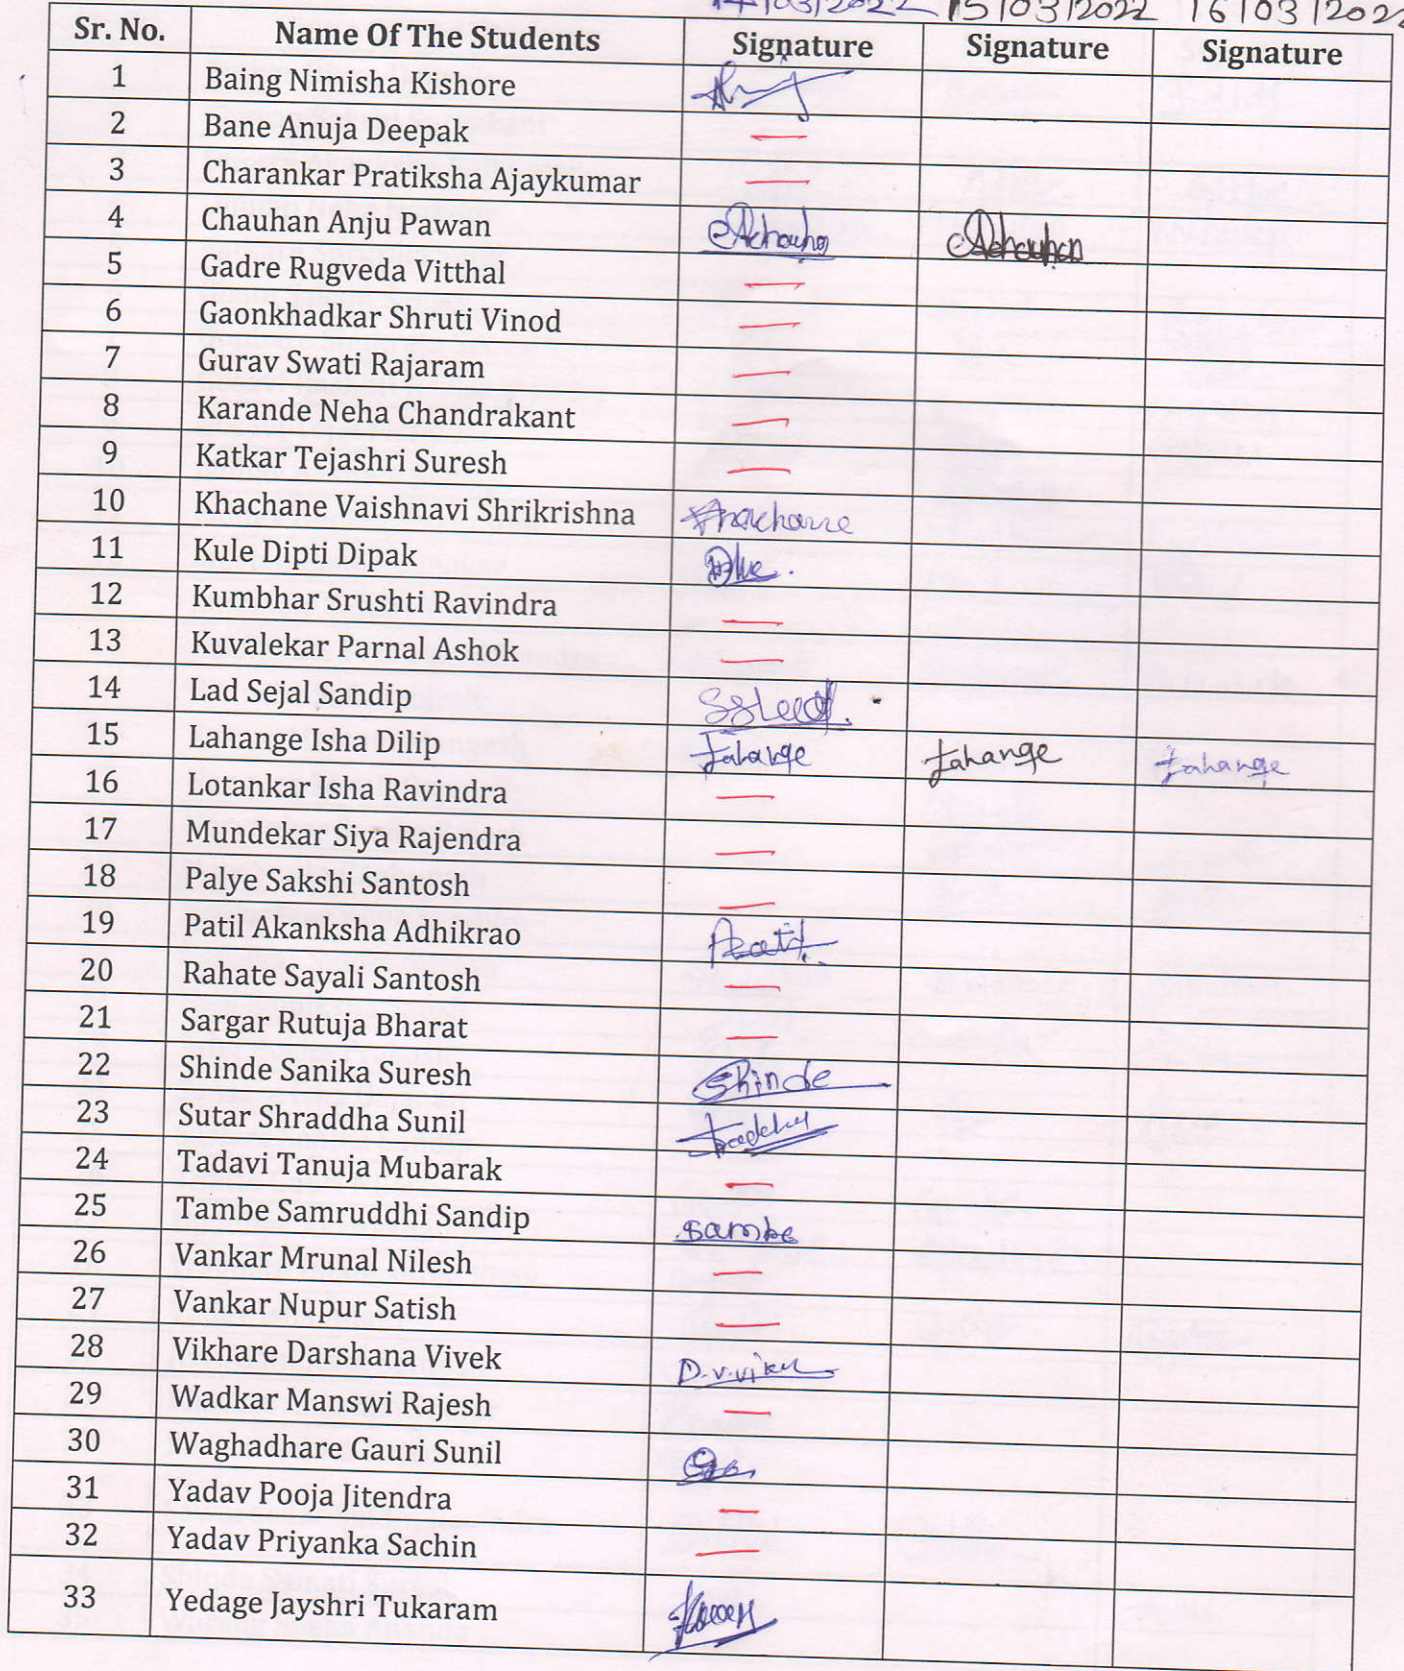 14/03/2022 15/03/2022 16/03/2022
Sr. No. Name Of The Students Signature Signature Signature
1 Baing Nimisha Kishore
2 Bane Anuja Deepak —
3 Charankar Pratiksha Ajaykumar —
4 Chauhan Anju Pawan AChauhan AChauhan
5 Gadre Rugveda Vitthal —
6 Gaonkhadkar Shruti Vinod —
7 Gurav Swati Rajaram —
8 Karande Neha Chandrakant —
9 Katkar Tejashri Suresh —
10 Khachane Vaishnavi Shrikrishna Khachane
11 Kule Dipti Dipak
12 Kumbhar Srushti Ravindra —
13 Kuvalekar Parnal Ashok —
14 Lad Sejal Sandip
15 Lahange Isha Dilip Lahange Lahange Lahange
16 Lotankar Isha Ravindra —
17 Mundekar Siya Rajendra —
18 Palye Sakshi Santosh —
19 Patil Akanksha Adhikrao
20 Rahate Sayali Santosh —
21 Sargar Rutuja Bharat —
22 Shinde Sanika Suresh Shinde
23 Sutar Shraddha Sunil
24 Tadavi Tanuja Mubarak —
25 Tambe Samruddhi Sandip
26 Vankar Mrunal Nilesh —
27 Vankar Nupur Satish —
28 Vikhare Darshana Vivek
29 Wadkar Manswi Rajesh —
30 Waghadhare Gauri Sunil
31 Yadav Pooja Jitendra —
32 Yadav Priyanka Sachin —
33 Yedage Jayshri Tukaram